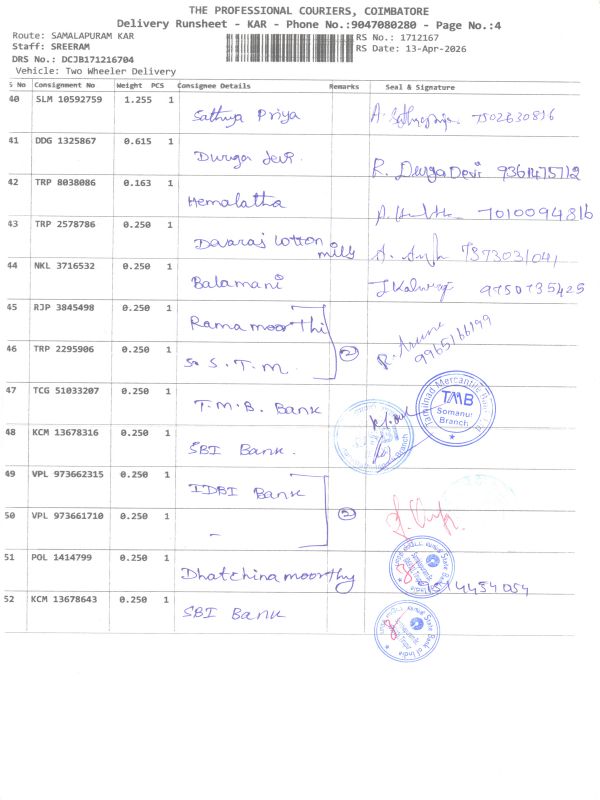 THE PROFESSIONAL COURIERS, COIMBATORE
Delivery Runsheet - KAR - Phone No.:9047080280 - Page No.:4
Route: SAMALAPURAM KAR
RS No.: 1712167
Staff: SREERAM
RS Date: 13-Apr-2026
DRS No.: DCJB171216704
Vehicle: Two Wheeler Delivery
S No Consignment No Weight PCS Consignee Details Remarks Seal & Signature
40 SLM 10592759 1.255 1
Sathya Priya
41 DDG 1325867 0.615 1
Durga Devi R. Durga Devi
42 TRP 8038086 0.163 1
Hemalatha 7010094816
43 TRP 2578786 0.250 1
Devaraj Cotton mills
44 NKL 3716532 0.250 1
Balamani 9750735425
45 RJP 3845498 0.250 1
Ramamoorthi 9965166199
46 TRP 2295906 0.250 1
S.T.M. 2
47 TCG 51033207 0.250 1
T.M.B. Bank
Tamilnad Mercantile Bank Ltd
TMB
Somanur
Branch
48 KCM 13678316 0.250 1
SBI Bank.
49 VPL 973662315 0.250 1
IDBI Bank
50 VPL 973661710 0.250 1
-
51 POL 1414799 0.250 1
Dhatchinamoorthy
State Bank of India
52 KCM 13678643 0.250 1
SBI Bank
State Bank of India